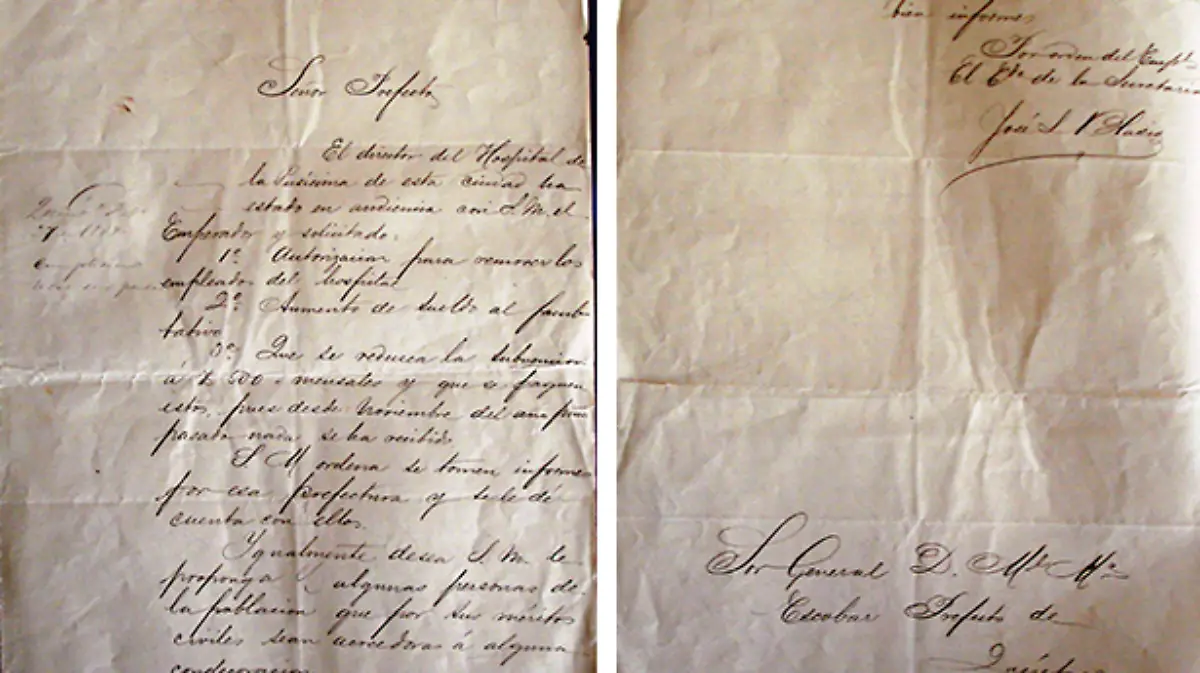 Señor Prefecto
El director del Hospital de
la Purísima de esta ciudad ha
estado en audiencia con S. M. el
Emperador y solicitado.
1º. Autorizacion para remover los
empleados del hospital
2º. Aumento de sueldo al facul-
tativo
3º. Que se redusca la subvencion
á $ 500 mensales y que se paguen
estos, pues desde Noviembre del año
pasado nada se ha recibido
S. M. ordena se tomen informes
por esa prefectura y se le dé
cuenta con ellos.
Ygualmente desea S. M. le
proponga algunas personas de
la poblacion que por sus méritos
civiles sean acreedoras á alguna
condecoracion
bien informes
Por orden del Emp
El de la Secretaria
José L.
Sor General D. Ml. Ma.
Escobar Prefecto de